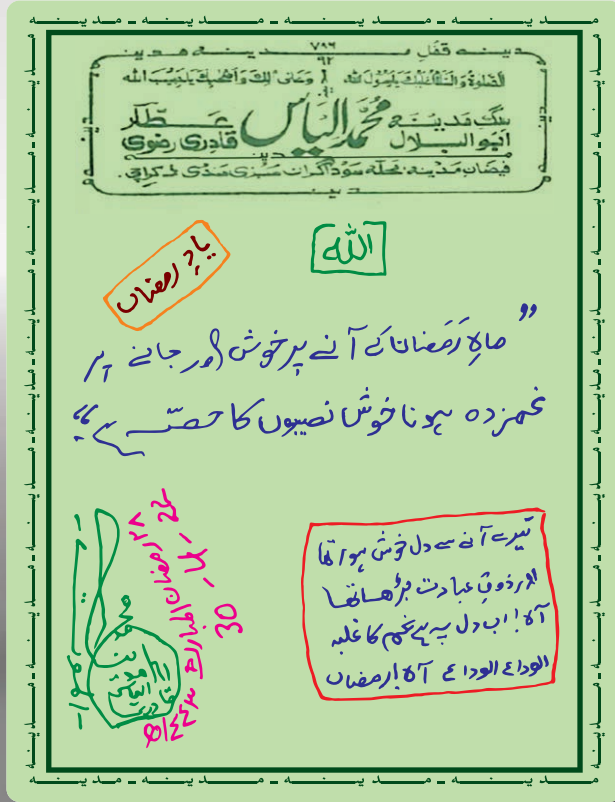 مدینہ قفل مدینہ
۷۸۶
۹۲
الصلوۃ والسلام علیک یارسول اللہ وعلیٰ الک واصحبک یاحبیب اللہ
سگِ مدینہ محمد الیاس عطار
ابوالبلال قادری رضوی
مدینہ
فیضانِ مدینہ محلہ سوداگران سبزی منڈی کراچی۔
مدینہ
اللہ
یادِ رمضان
"ماہِ رَمَضان کے آنے پر خوش اور جانے پر
غمزدہ ہونا خوش نصیبوں کا حصّہ ہے"
تیرے آنے سے دل خوش ہوا تھا
اور ذوقِ عبادت بڑھا تھا
آہ! اب دل پہ ہے غم کا غلبہ
الوداع الوداع آہ! رمضاں
۲۸ رمضان المبارک ۱۴۴۳ھ
30